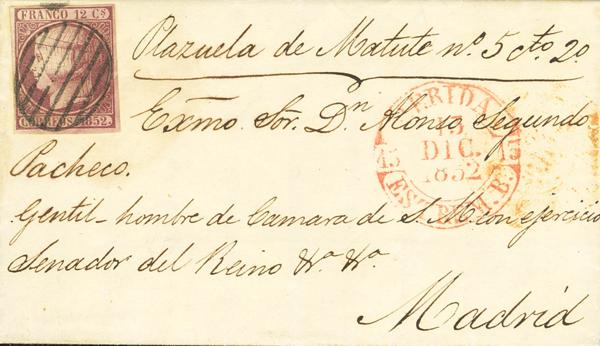 FRANCO 12 Cs
CORREOS 1852.
Plazuela de Matute nº. 5 cto 2º
Exmo. Sor. Dn. Alonso Segundo
Pacheco.
Gentil-hombre de Camara de S. M. con ejercicio
Senador del Reino &a. &a.
Madrid
MERIDA
13
DIC.
1852
15 15
EST. REM. B.